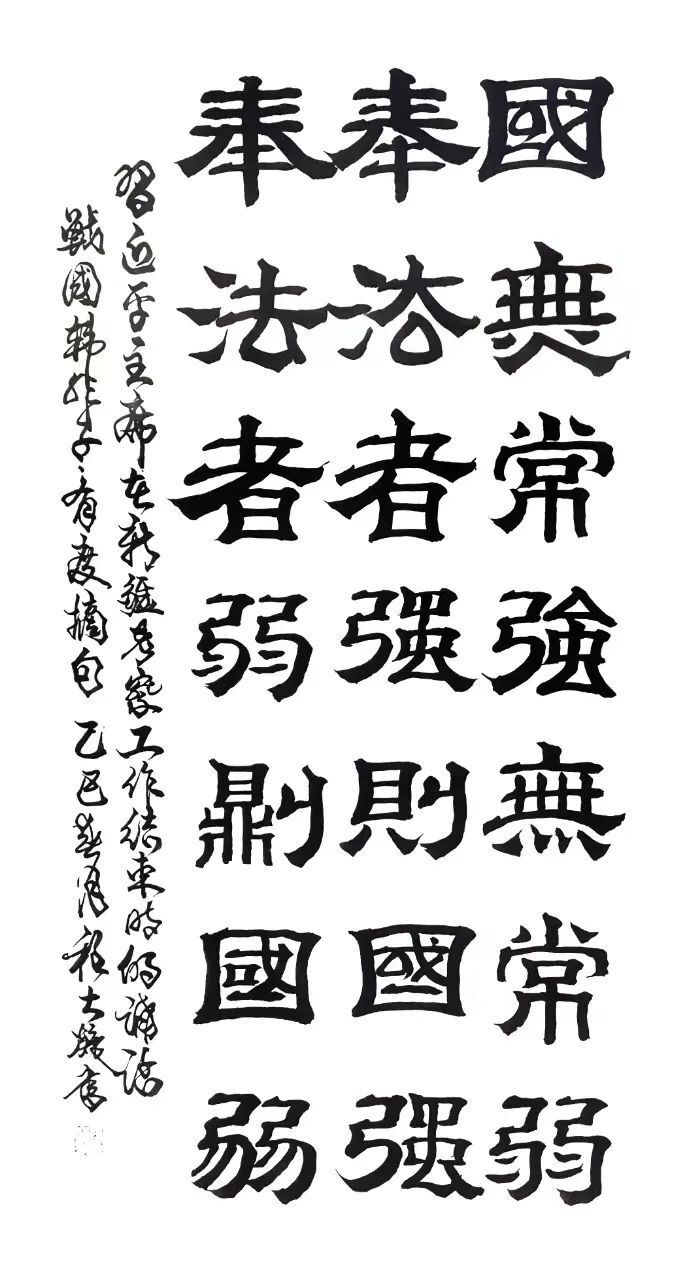 國無常強無常弱
奉法者强則國强
奉法者弱則國弱
習近平主席在新疆考察工作结束時的講話
戰國韩非子有度摘句 乙巳 月 大 書